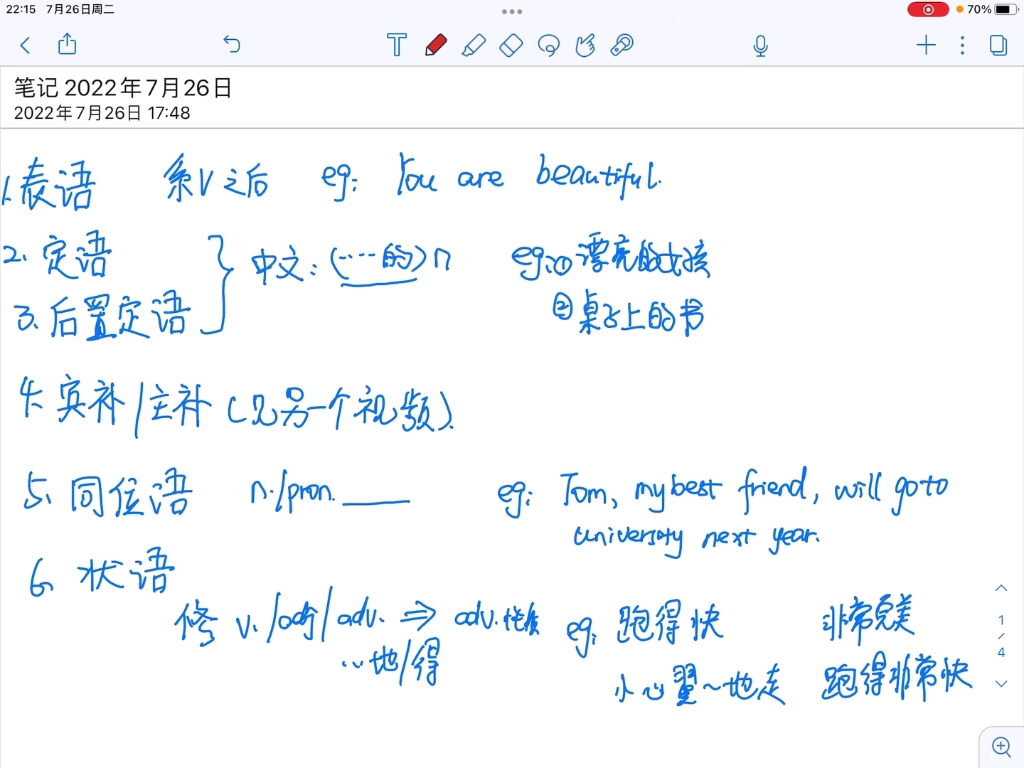 22:15 7月26日周二
70%
笔记 2022年7月26日
2022年7月26日 17:48
1.表语 系V之后 eg: You are beautiful.
2.定语
3.后置定语
中文:(……的)n eg:①漂亮的女孩
②桌子上的书
4.宾补/主补(见另一个视频).
5.同位语 n./pron.____ eg: Tom, my best friend, will go to
university next year.
6.状语
修 v./adj/adv. ⇒ adv.性质 eg: 跑得快 非常完美
…地/得
小心翼~地走 跑得非常快
1/4